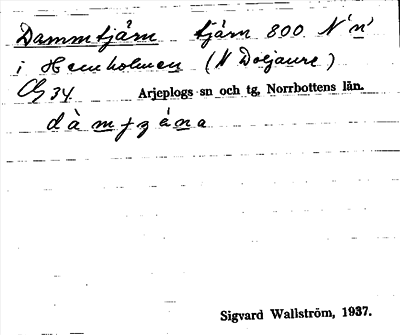 Dammtjärn tjärn 800 N'n'
i Hemholmen (N Doljaure)
34 Arjeplogs sn och tg, Norrbottens län.
Sigvard Wallström, 1937.